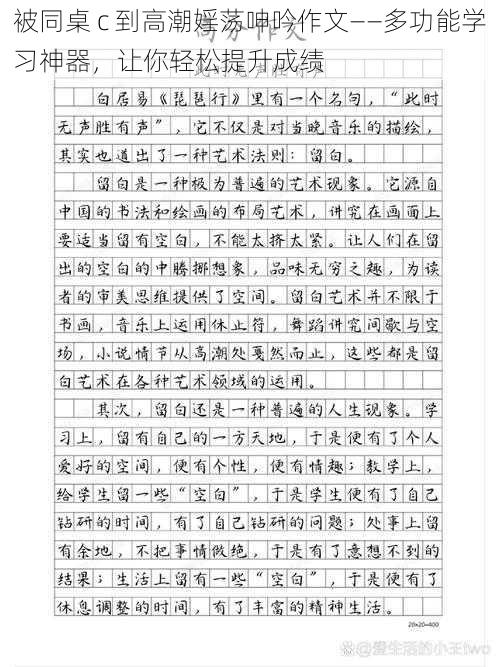 作文——多功能学
习神器，让你轻松提升成绩
白居易《琵琶行》里有一个名句，“此时
无声胜有声”，它不仅是对当晚音乐的描绘，
其实也道出了一种艺术法则：留白。
留白是一种极为普遍的艺术现象。它源自
中国的书法和绘画的布局艺术，讲究在画面上
要适当留有空白，不能太挤太紧。让人们在留
出的空白的中腾挪想象，品味无穷之趣，为读
者的审美思维提供了空间。留白艺术并不限于
书画，音乐上运用休止符，舞蹈讲究间歇与空
场，小说情节从高潮处戛然而止，这些都是留
白艺术在各种艺术领域的运用。
其次，留白还是一种普遍的人生现象。学
习上，留有自己的一方天地，于是便有了个人
爱好的空间，便有个性，便有情趣；教学上，
给学生留一些“空白”，于是学生便有了自己
钻研的时间，有了自己钻研的问题；处事上留
有余地，不把事情做绝，于是有了意想不到的
结果；生活上留有一些“空白”，于是便有了
休息调整的时间，有了丰富的精神生活。
20x20=400
@爱生活的小王two